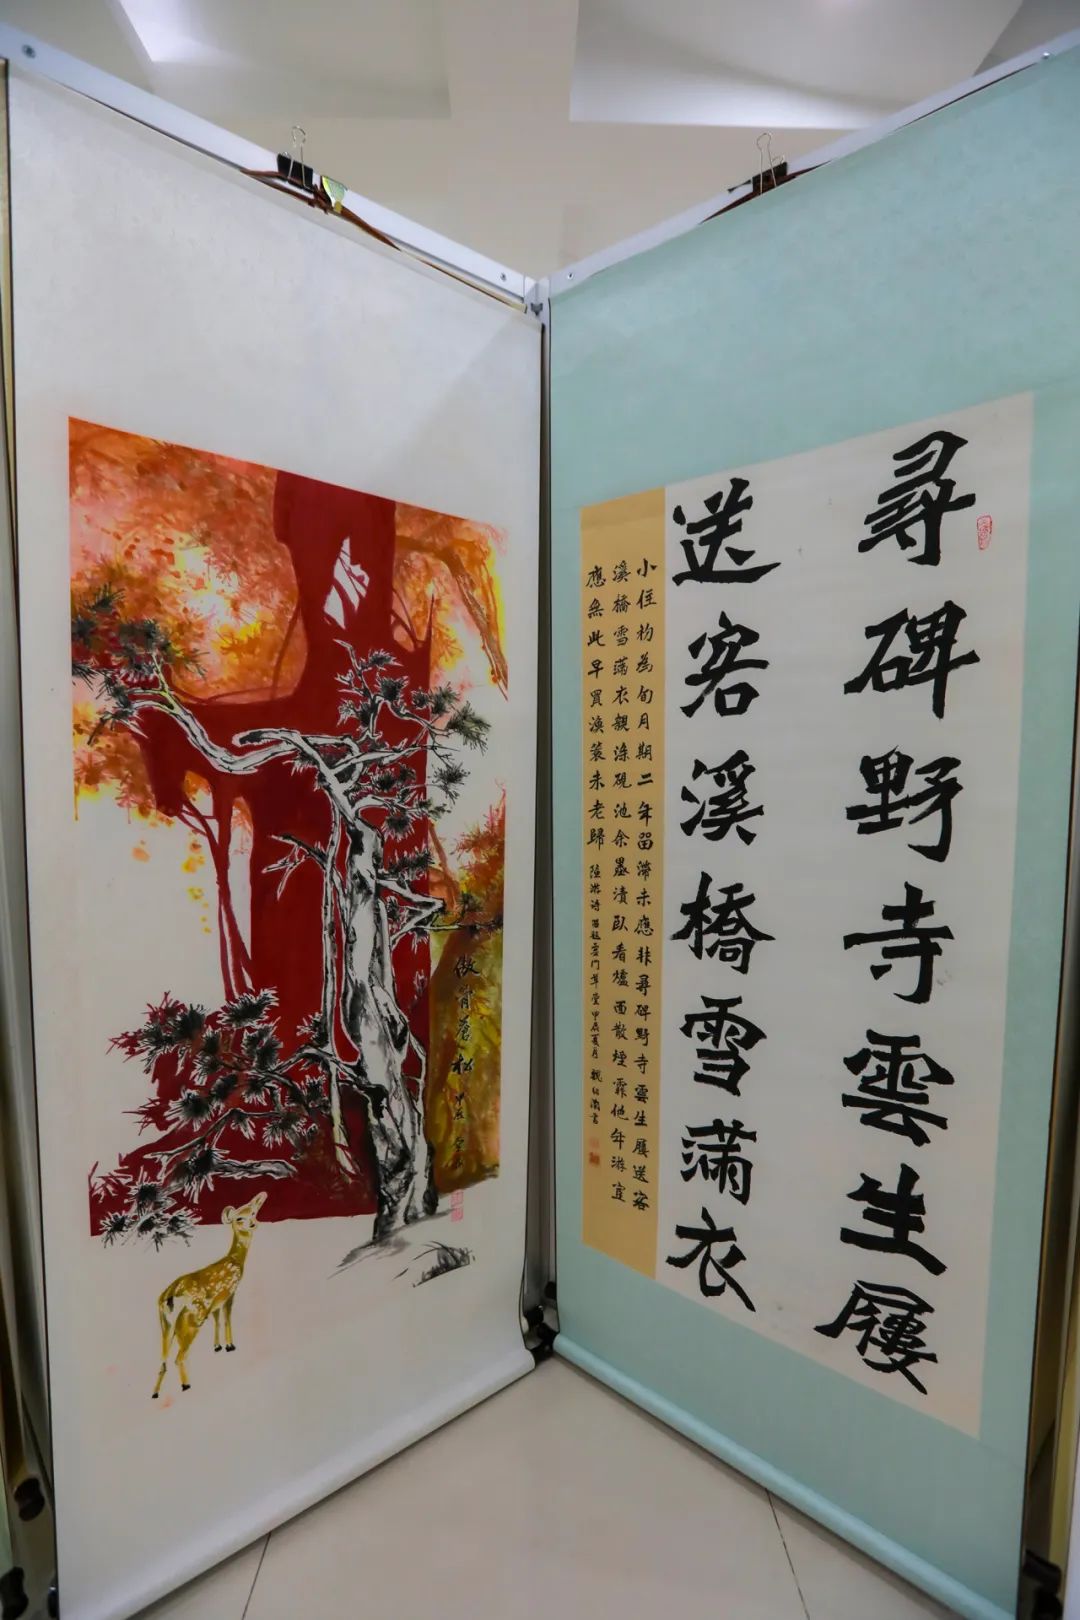 尋碑野寺雲生屨
送客溪橋雪滿衣
小住初為旬月期二年留滯未應非尋碑野寺雲生屨送客
溪橋雪滿衣親滌硯池余墨漬臥看爐面散煙霏他年游宦
應無此早買漁蓑未老歸 陸游诗 留題雲門草堂 甲辰夏月 魏書
傲骨蒼松
甲辰